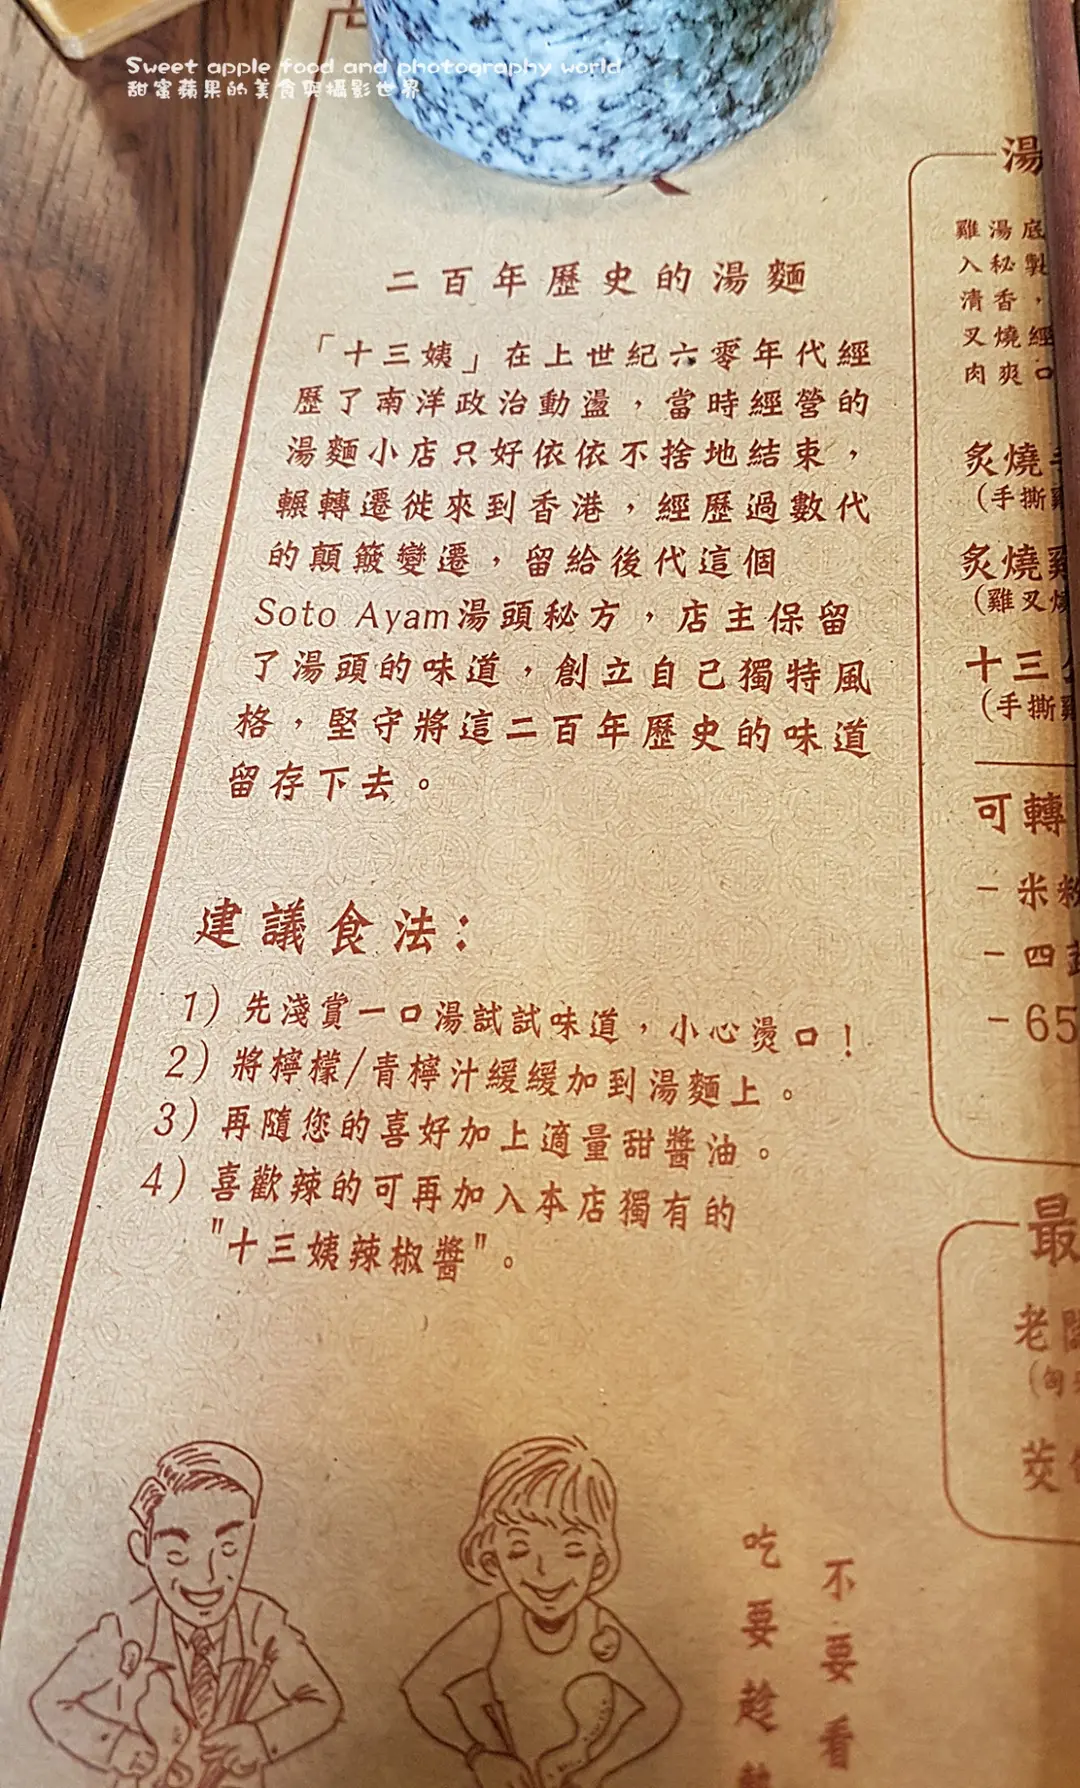 Sweet apple food and photography world
甜蜜蘋果的美食與攝影世界
二百年歷史的湯麵
「十三姨」在上世紀六零年代經
歷了南洋政治動盪，當時經營的
湯麵小店只好依依不捨地結束，
輾轉遷徙來到香港，經歷過數代
的顛簸變遷，留給後代這個
Soto Ayam湯頭秘方，店主保留
了湯頭的味道，創立自己獨特風
格，堅守將這二百年歷史的味道
留存下去。
建議食法：
1) 先淺賞一口湯試試味道，小心燙口！
2) 將檸檬/青檸汁緩緩加到湯麵上。
3) 再隨您的喜好加上適量甜醬油。
4) 喜歡辣的可再加入本店獨有的
"十三姨辣椒醬"。
不要看
吃要趁
湯
雞湯底
入秘製
清香，
叉燒經
肉爽口
炙燒
(手撕雞
炙燒雞
(雞叉燒
十三
(手撕雞
可轉
- 米粉
- 四
- 65
最
老闆